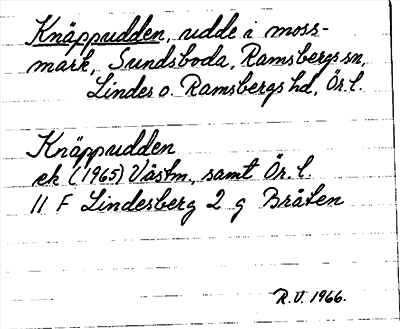 Knäppudden, udde i moss-
mark, Sundsboda, Ramsbergs sn,
Lindes o. Ramsbergs hd, Ör. l.
Knäppudden
ek (1965) Västm., samt Ör. l.
11 F Lindesberg 2 g Bråten
R.V. 1966.